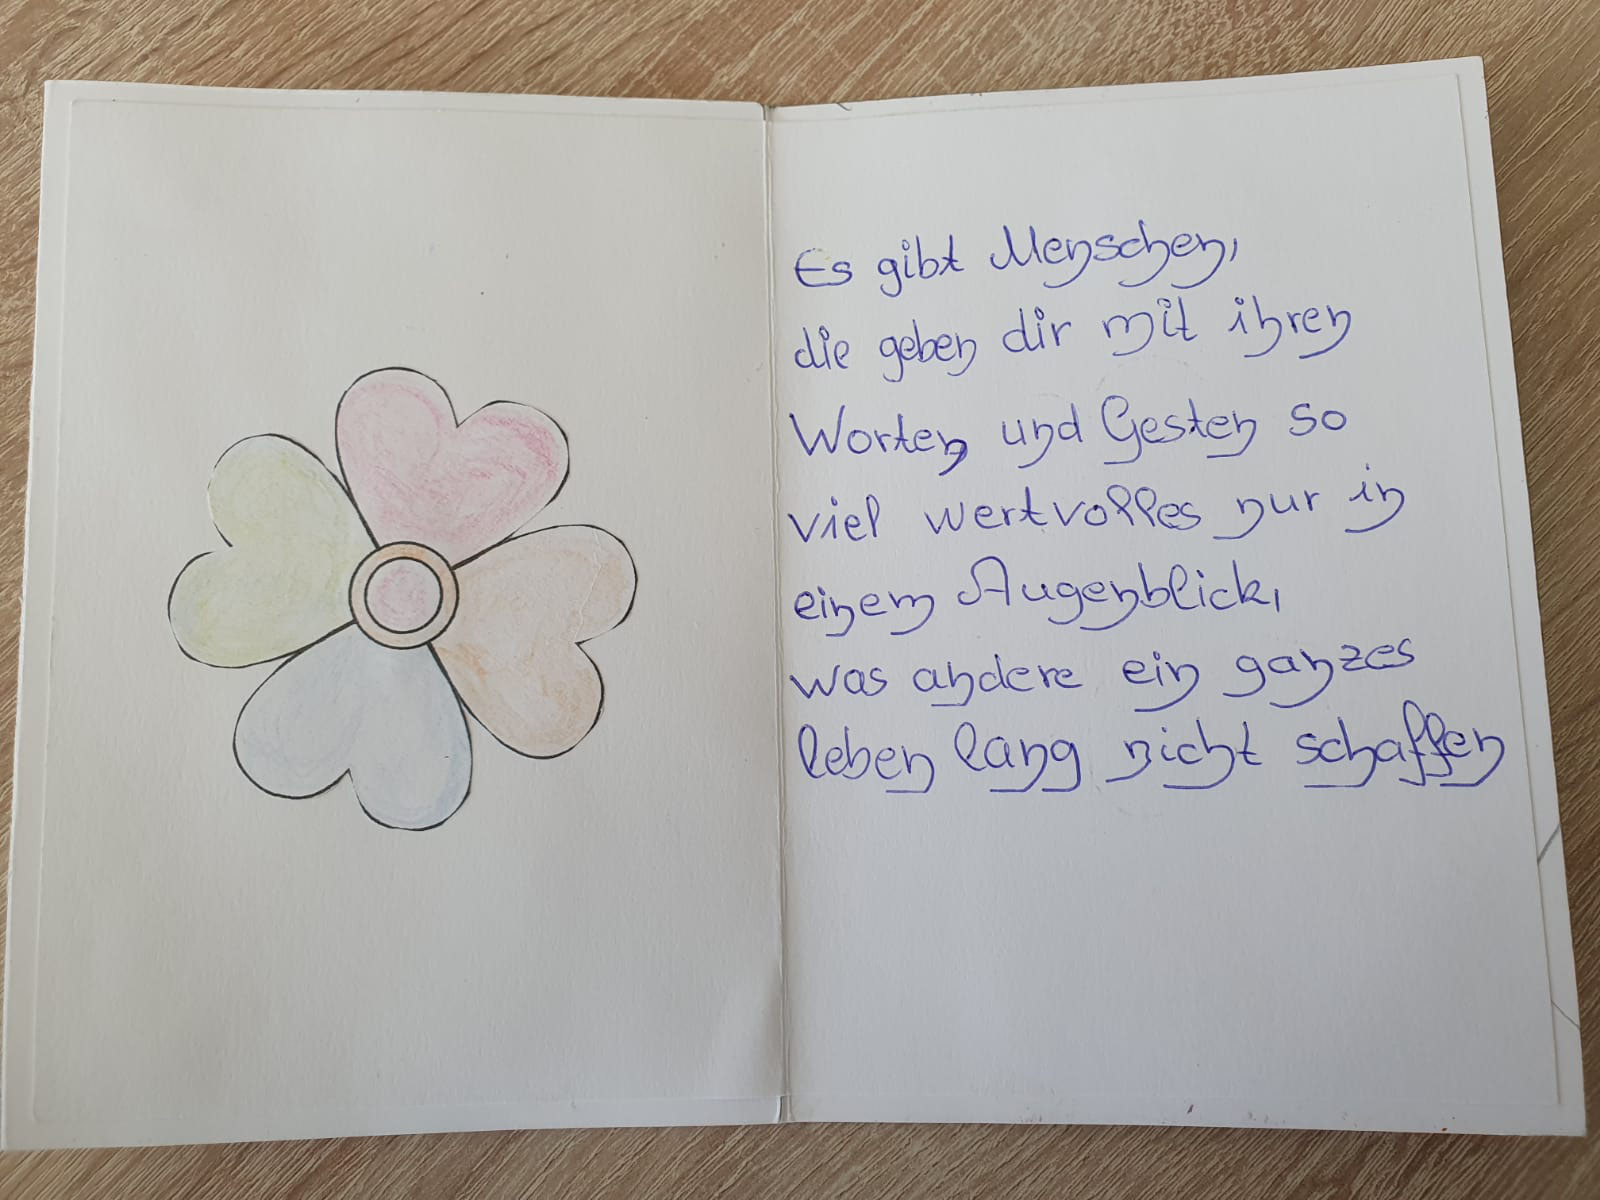 Es gibt Menschen,
die geben dir mit ihren
Worten und Gesten so
viel wertvolles nur in
einem Augenblick,
was andere ein ganzes
leben lang nicht schaffen